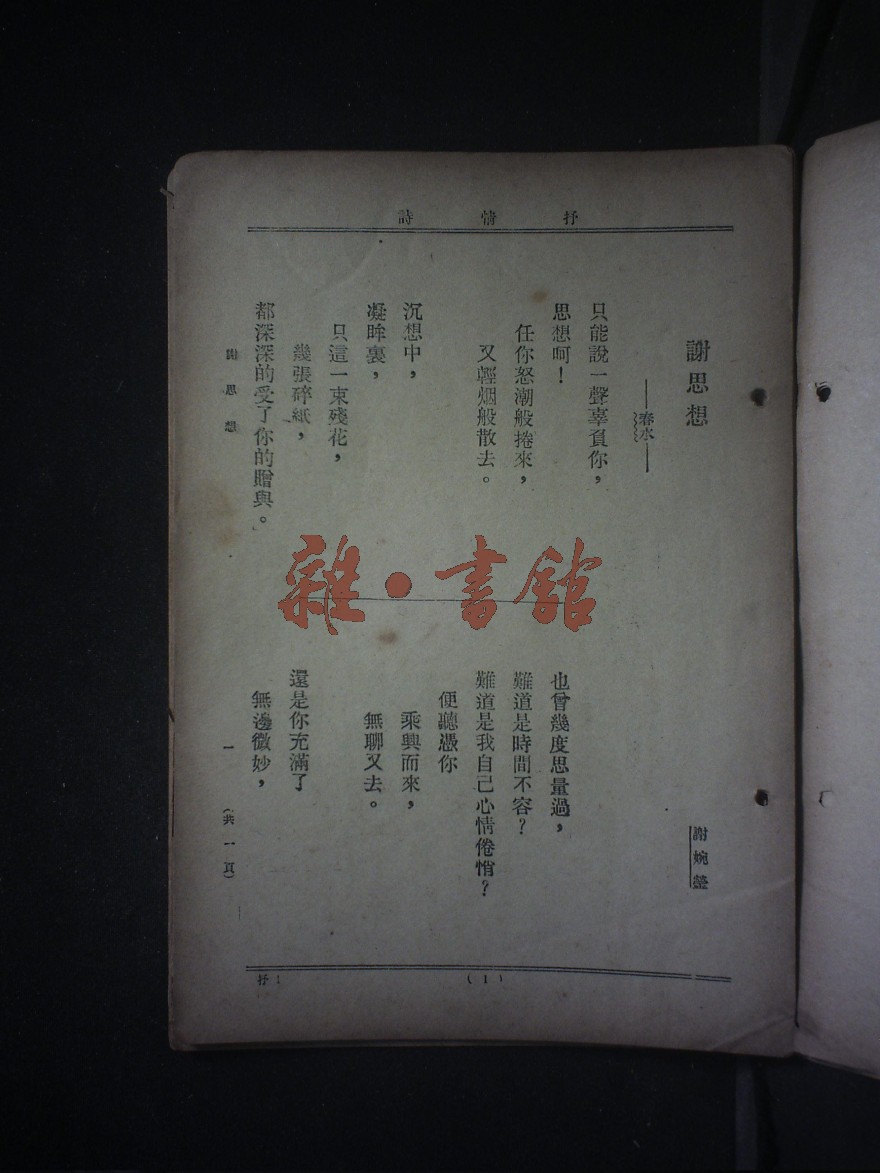 抒情詩
謝思想
——春水——
謝婉瑩
只能說一聲辜負你，
思想呵！
任你怒潮般捲來，
又輕烟般散去。
沉想中，
凝眸裏，
只這一束殘花，
幾張碎紙，
都深深的受了你的贈與。
也曾幾度思量過，
難道是時間不容？
難道是我自己心情倦慵？
便聽憑你
乘興而來，
無聊又去。
還是你充滿了
無邊微妙，
謝思想
一
（共一頁）
(1)
抒1
雜·書館